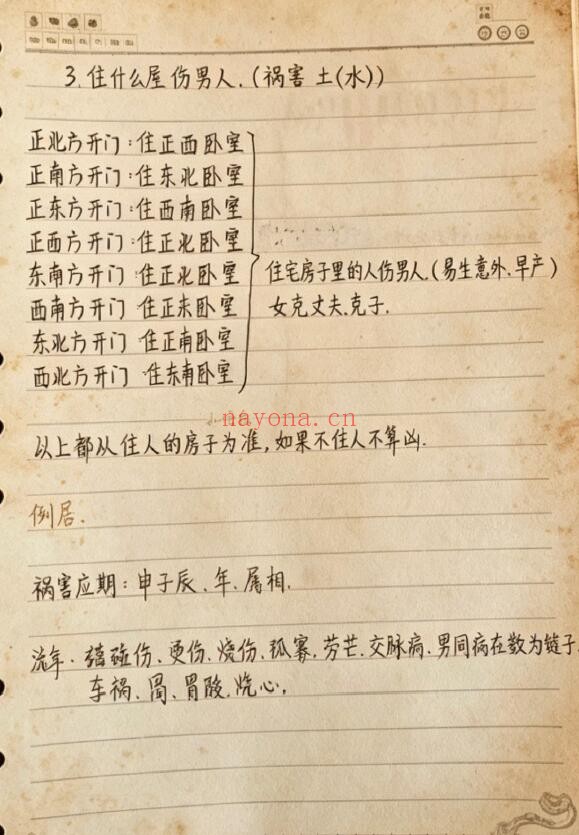 3.住什么屋伤男人.(祸害 土(水))
正北方开门:住正西卧室
正南方开门:住东北卧室
正东方开门:住西南卧室
正西方开门:住正北卧室
东南方开门:住正北卧室
西南方开门:住正东卧室
东北方开门 住正南卧室
西北方开门 住东南卧室
住宅房子里的人伤男人.(易生意外.早产)
女克丈夫.克子.
nayona.cn
以上都从住人的房子为准,如果不住人不算凶.
例居.
祸害应期:申子辰.年.属相.
流年.磕碰伤.烫伤.烧伤.孤寡.劳芒.交脉病.男同病在数为链子.
车祸.胃酸.烧心,